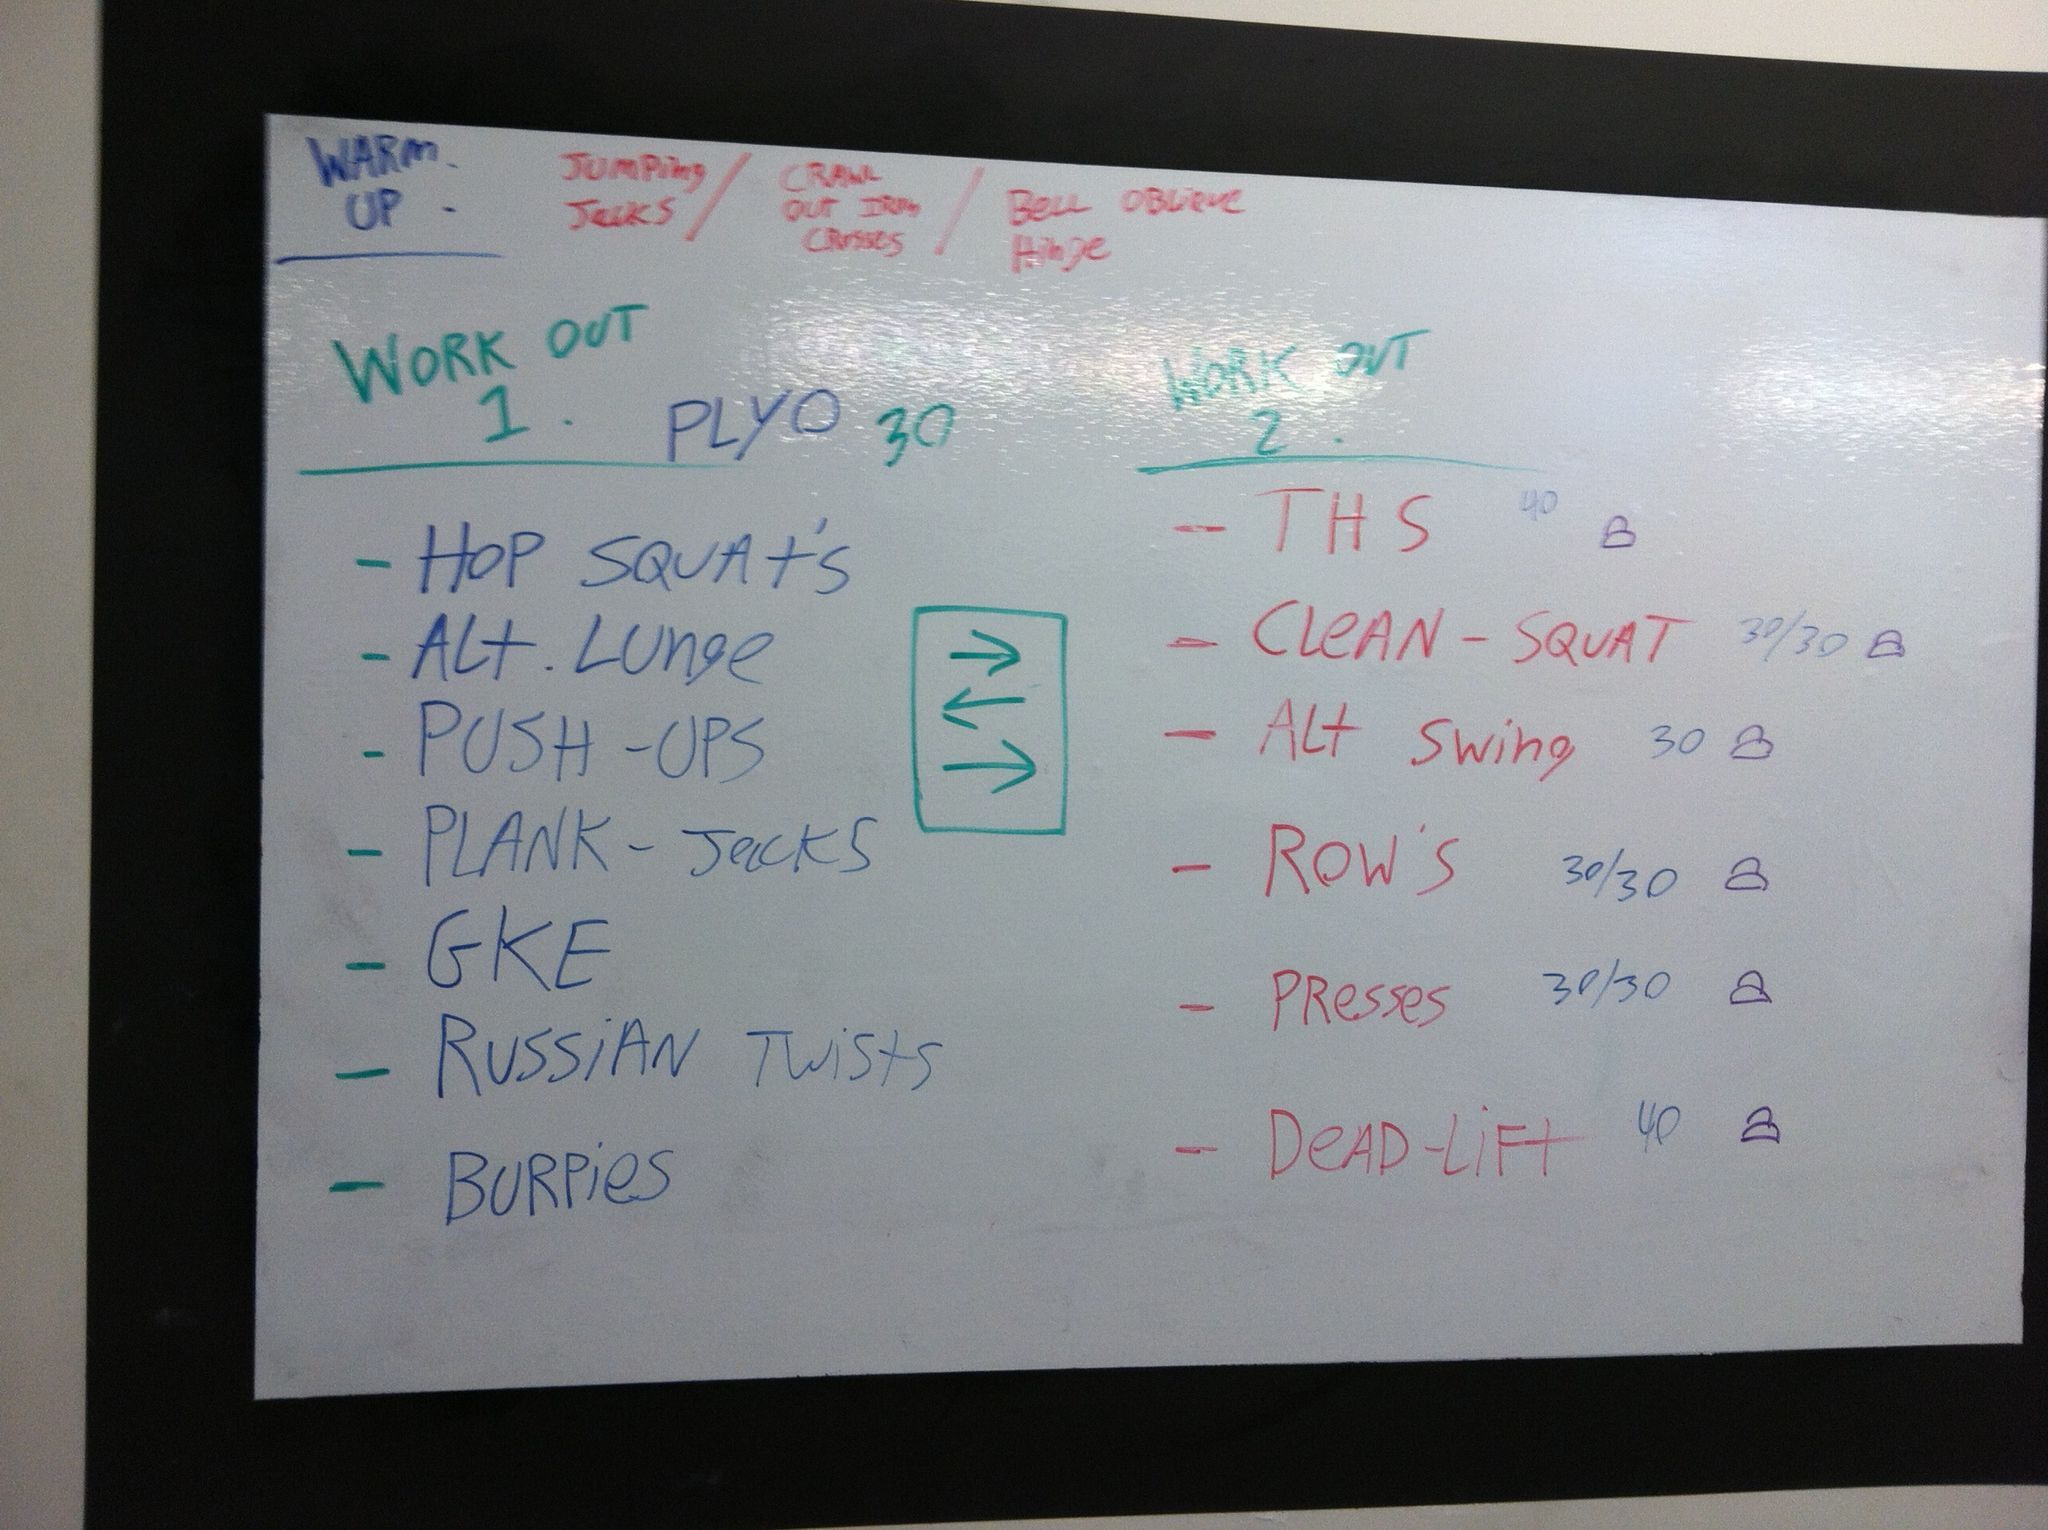 WARM-
UP -
JUMPing / CRAWL / Bell OBLIEVE
JACKS OUT IRON Hinge
CROSSES
WORK OUT
1. PLYO 30
- HOP SQUAt's
- ALt. LUnge
- PUSH-UPS
- PLANK-JACKS
- GKE
- RUSSiAN TWiStS
- BURPieS
WORK OUT
2.
- THS 40
- CLeAN-SQUAT 30/30
- ALt Swing 30
- ROW'S 30/30
- PResses 30/30
- DeAD-LiFt 40